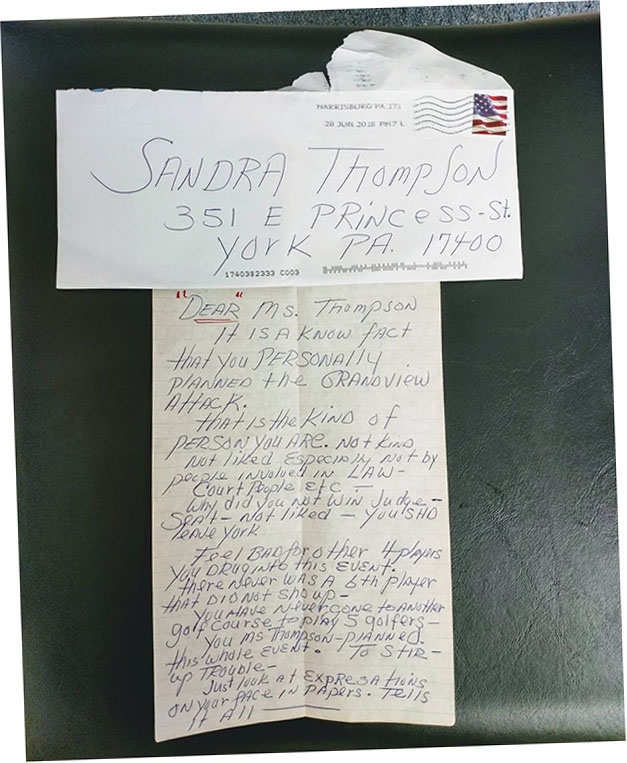 HARRISBURG PA 171
28 JUN 2018 PM 7 L
SANDRA THOMPSON
351 E PRINCESS-St.
YORK PA. 17400
17403$2333 C003
"DEAR" MS. THOMPSON
It IS A KNOW FACT
that you PERSONALLY
PLANNED the GRANDVIEW
ATTACK.
that is the KIND of
PERSON YOU ARE. NOT KIND
NOT liked Especially NOT by
people involved IN LAW-
Court People Etc -
Why did you NOT WIN Judge-
Seat- NOT liked - YOU SHD
leave York
Feel BAD for other 4 players
You DRUG INTO this EVENT.
there NEVER WAS A 6th player
that DID NOT Sho up-
You HAVE NEVER gone to ANOTHER
golf course to play 5 golfers-
You Ms Thompson-PLANNED.
this whole EVENT. To STIR-
up TROUBLE-
Just look at EXPRESATIONS
ON your FACE IN PAPERS. Tells
It All